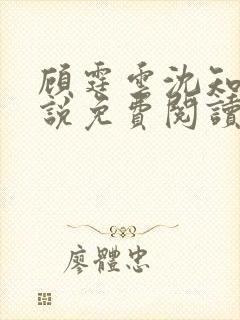 顾霆雲沈知
說免費閱讀
廖體忠